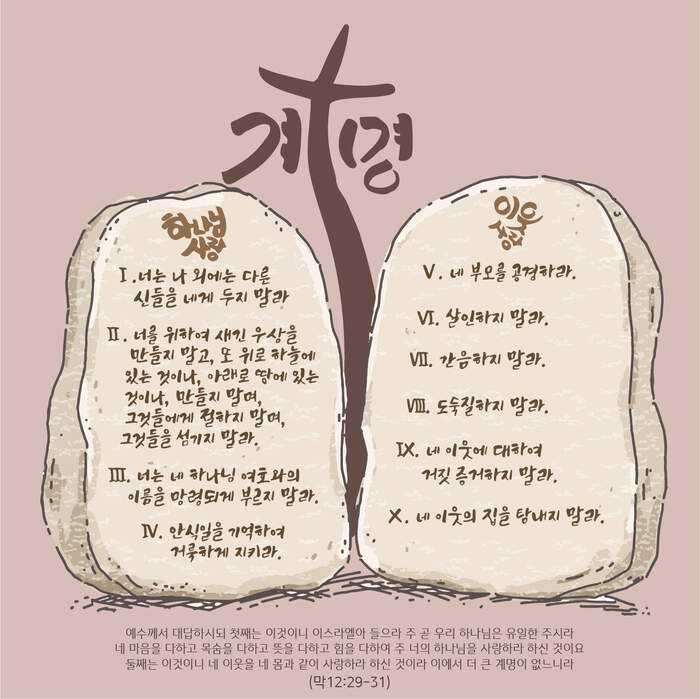 계명
하나님
사랑
I. 너는 나 외에는 다른
신들을 네게 두지 말라
II. 너를 위하여 새긴 우상을
만들지 말고, 또 위로 하늘에
있는 것이나, 아래로 땅에 있는
것이나, 만들지 말며,
그것들에게 절하지 말며,
그것들을 섬기지 말라.
III. 너는 네 하나님 여호와의
이름을 망령되게 부르지 말라.
IV. 안식일을 기억하여
거룩하게 지키라.
이웃
사랑
V. 네 부모를 공경하라.
VI. 살인하지 말라.
VII. 간음하지 말라.
VIII. 도둑질하지 말라.
IX. 네 이웃에 대하여
거짓 증거하지 말라.
X. 네 이웃의 집을 탐내지 말라.
예수께서 대답하시되 첫째는 이것이니 이스라엘아 들으라 주 곧 우리 하나님은 유일한 주시라
네 마음을 다하고 목숨을 다하고 뜻을 다하고 힘을 다하여 주 너의 하나님을 사랑하라 하신 것이요
둘째는 이것이니 네 이웃을 네 몸과 같이 사랑하라 하신 것이라 이에서 더 큰 계명이 없느니라
(막12:29-31)